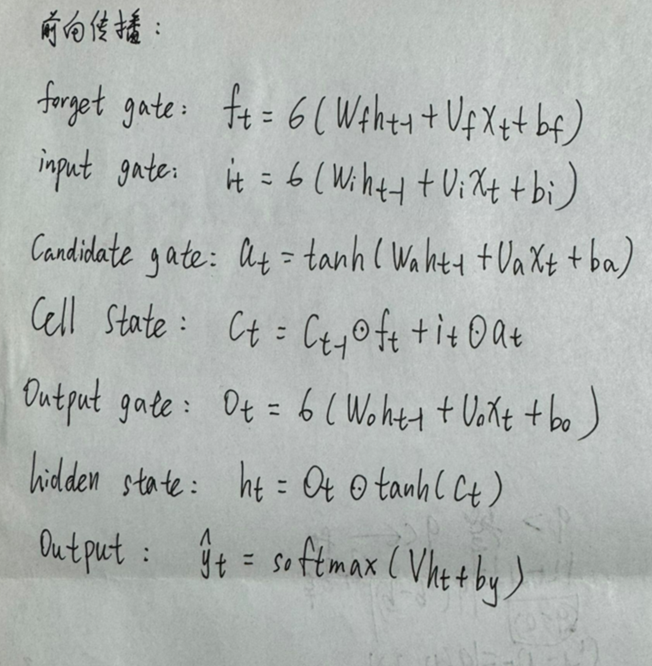 前向传播：
forget gate: f_t = σ(W_f h_{t-1} + U_f x_t + b_f)
input gate: i_t = σ(W_i h_{t-1} + U_i x_t + b_i)
Candidate gate: a_t = tanh(W_a h_{t-1} + U_a x_t + b_a)
Cell State: C_t = C_{t-1} ⊙ f_t + i_t ⊙ a_t
Output gate: O_t = σ(W_o h_{t-1} + U_o x_t + b_o)
hidden state: h_t = O_t ⊙ tanh(C_t)
Output: ŷ_t = softmax(V h_t + b_y)